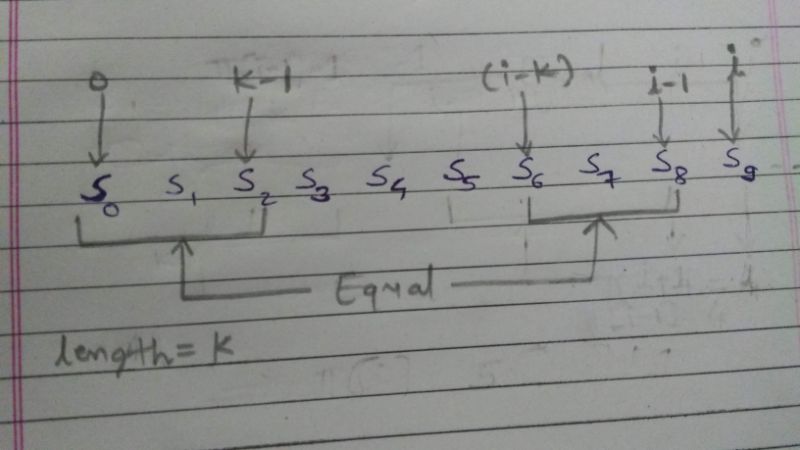 0 k-1 (i-k) i-1 i
S0 S1 S2 S3 S4 S5 S6 S7 S8 S9
Equal
length = k